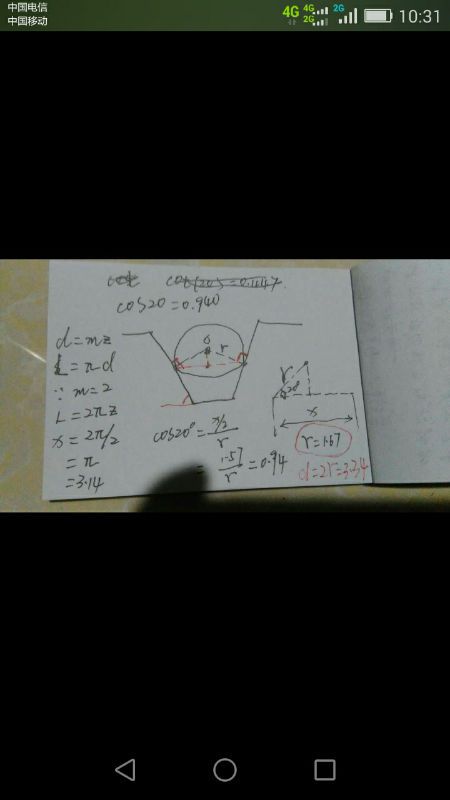 中国电信
中国移动
4G 4G 2G 2G 10:31
cos20=0.940
d=mz
L=πd
∵ m=2
L=2πz
x=2π/2
=π
=3.14
O
r
cos20°=x/2/r
=1.57/r=0.94
r
20°
x
r=1.67
d=2r=3.34